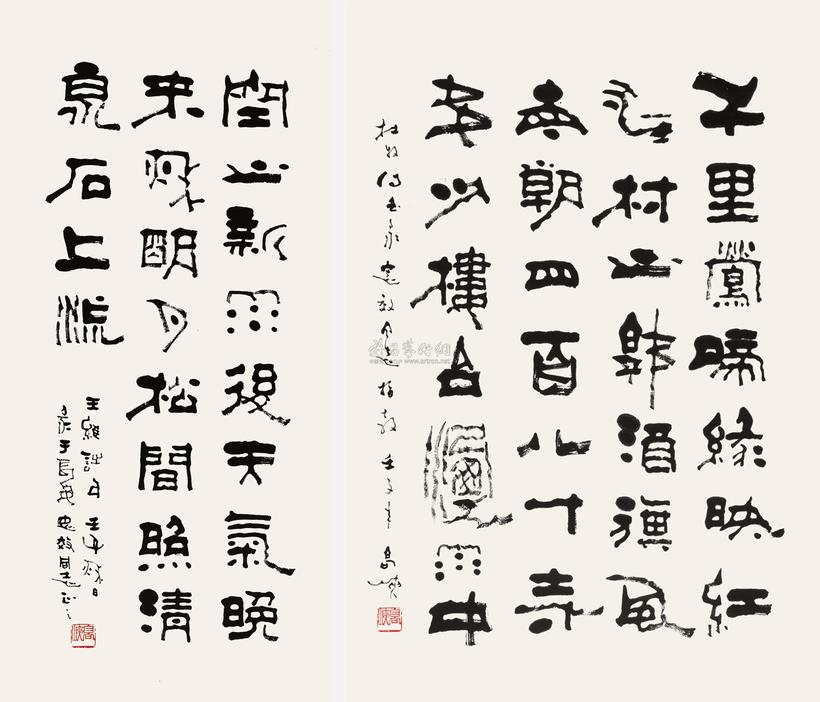 千里鶯啼綠映紅
水村山郭酒旗風
南朝四百八十寺
多少樓台煙雨中
杜牧
空山新雨後天氣晚
来秋明月松間照清
泉石上流
王維詩句
同志正之
www.artron.net